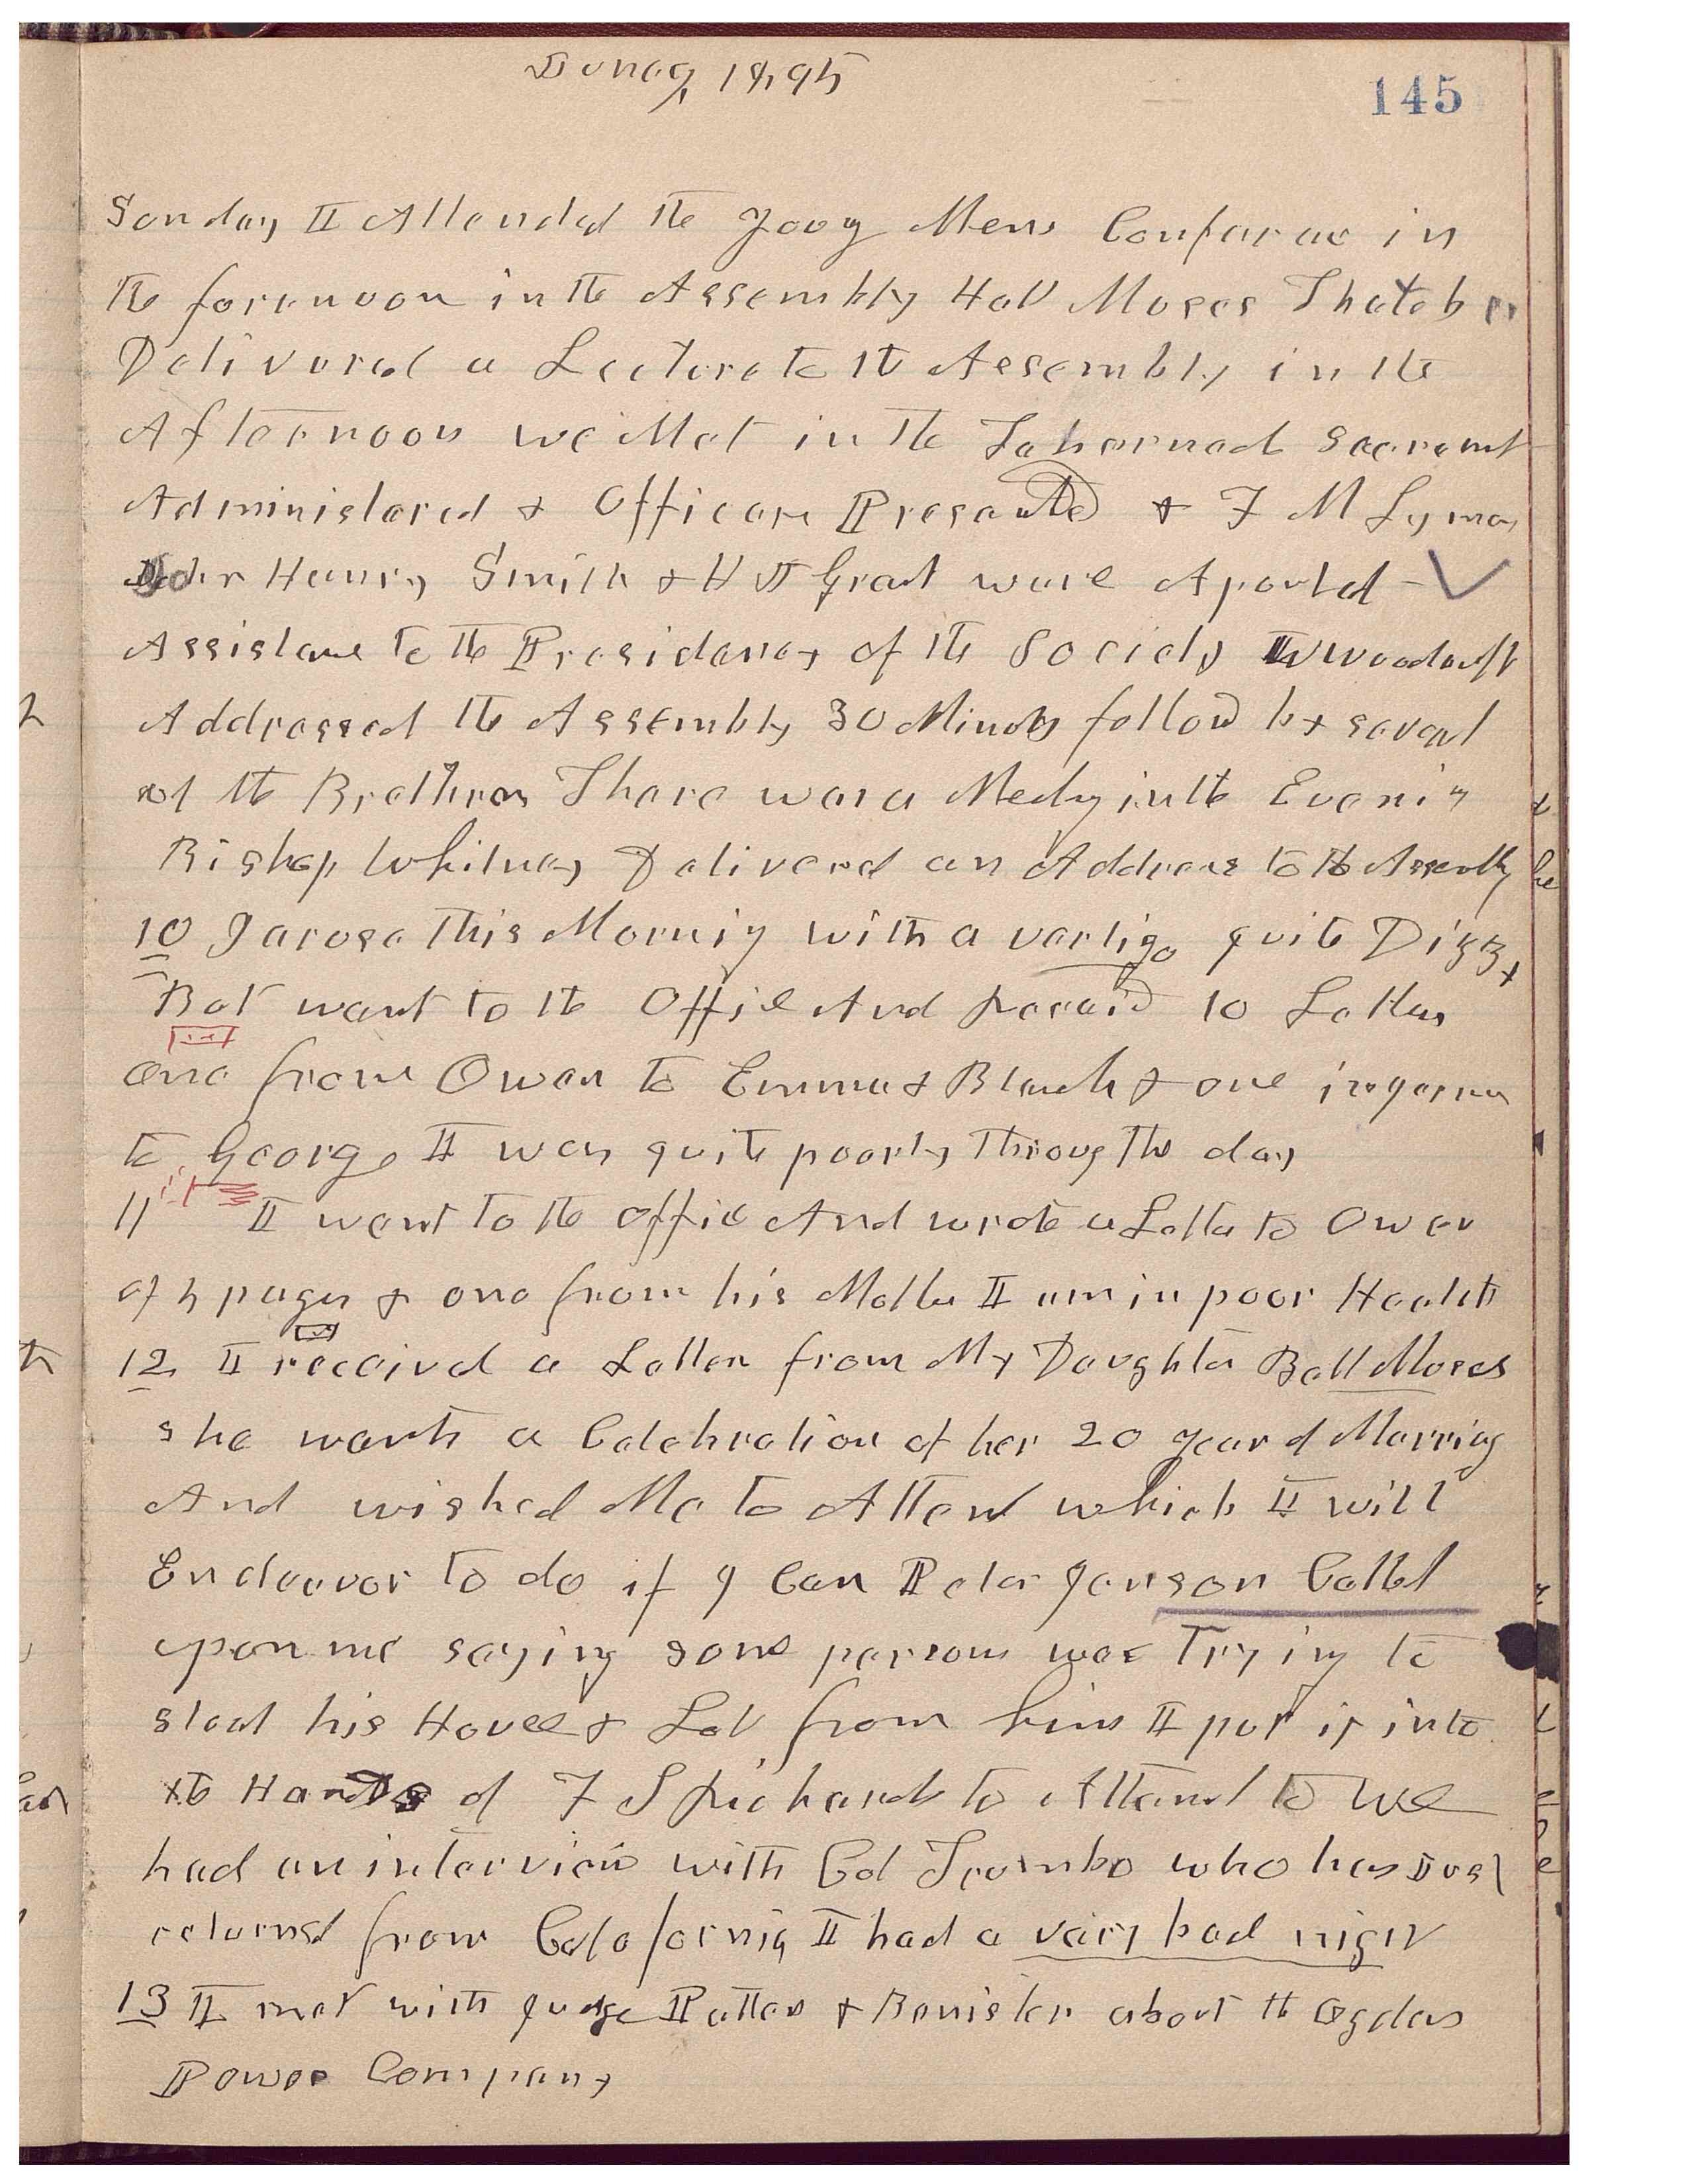 June 9, 1895
145
Sunday I Attended the Young Mens Conferance in
the forenoon in the Assembly Hall Moses Thatcher
Delivered a Lecture to the Assembly in the
Afternoon we Met in the Tabernacle Sacrament
Administered & Officers Presented & F M Lyman
John Henry Smith & H J Grant were Apointed
Assistance to the Presidency of the Society W Woodruff
Addressed the Assembly 30 Minutes followd by several
of the Brethren There was a Meeting in the Evening
Bishop Whitney Delivered an Address to the Assembly
10 I arose this Morning with a vertigo quite Dizzy
But went to the Office And received 10 Letters
one from Owen to Emma & Blanch & one
to George I was quite poorly through the day
11 I went to the office And wrote a Letter to Owen
of 5 pages & one from his Mother I am in poor Health
12 I received a Letter from My Daughter Bell Moses
she wants a Celebration of her 20 year of Marriag
And wished Me to Attend which I will
Endeavor to do if I Can Peter Janson Called
upon me saying some persons was Trying to
steal his House & Lot from him I put it into
the Hands of F S Richards to Attend to We
had an interview with Col Trumbo who has Just
returned from Calafornia I had a very bad night
13 I met with Judge Patten & Banister about the Ogden
Power Company